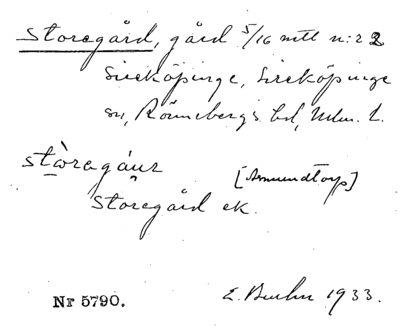 Storegård, gård 5/16 mtl n:r 2
Sireköpinge, Sireköpinge
sn, Rönnebergs hd, Mlm. l.
stòragáur [Annundtorp]
Storegård ek.
Nr 5790. E. Buhn 1933.